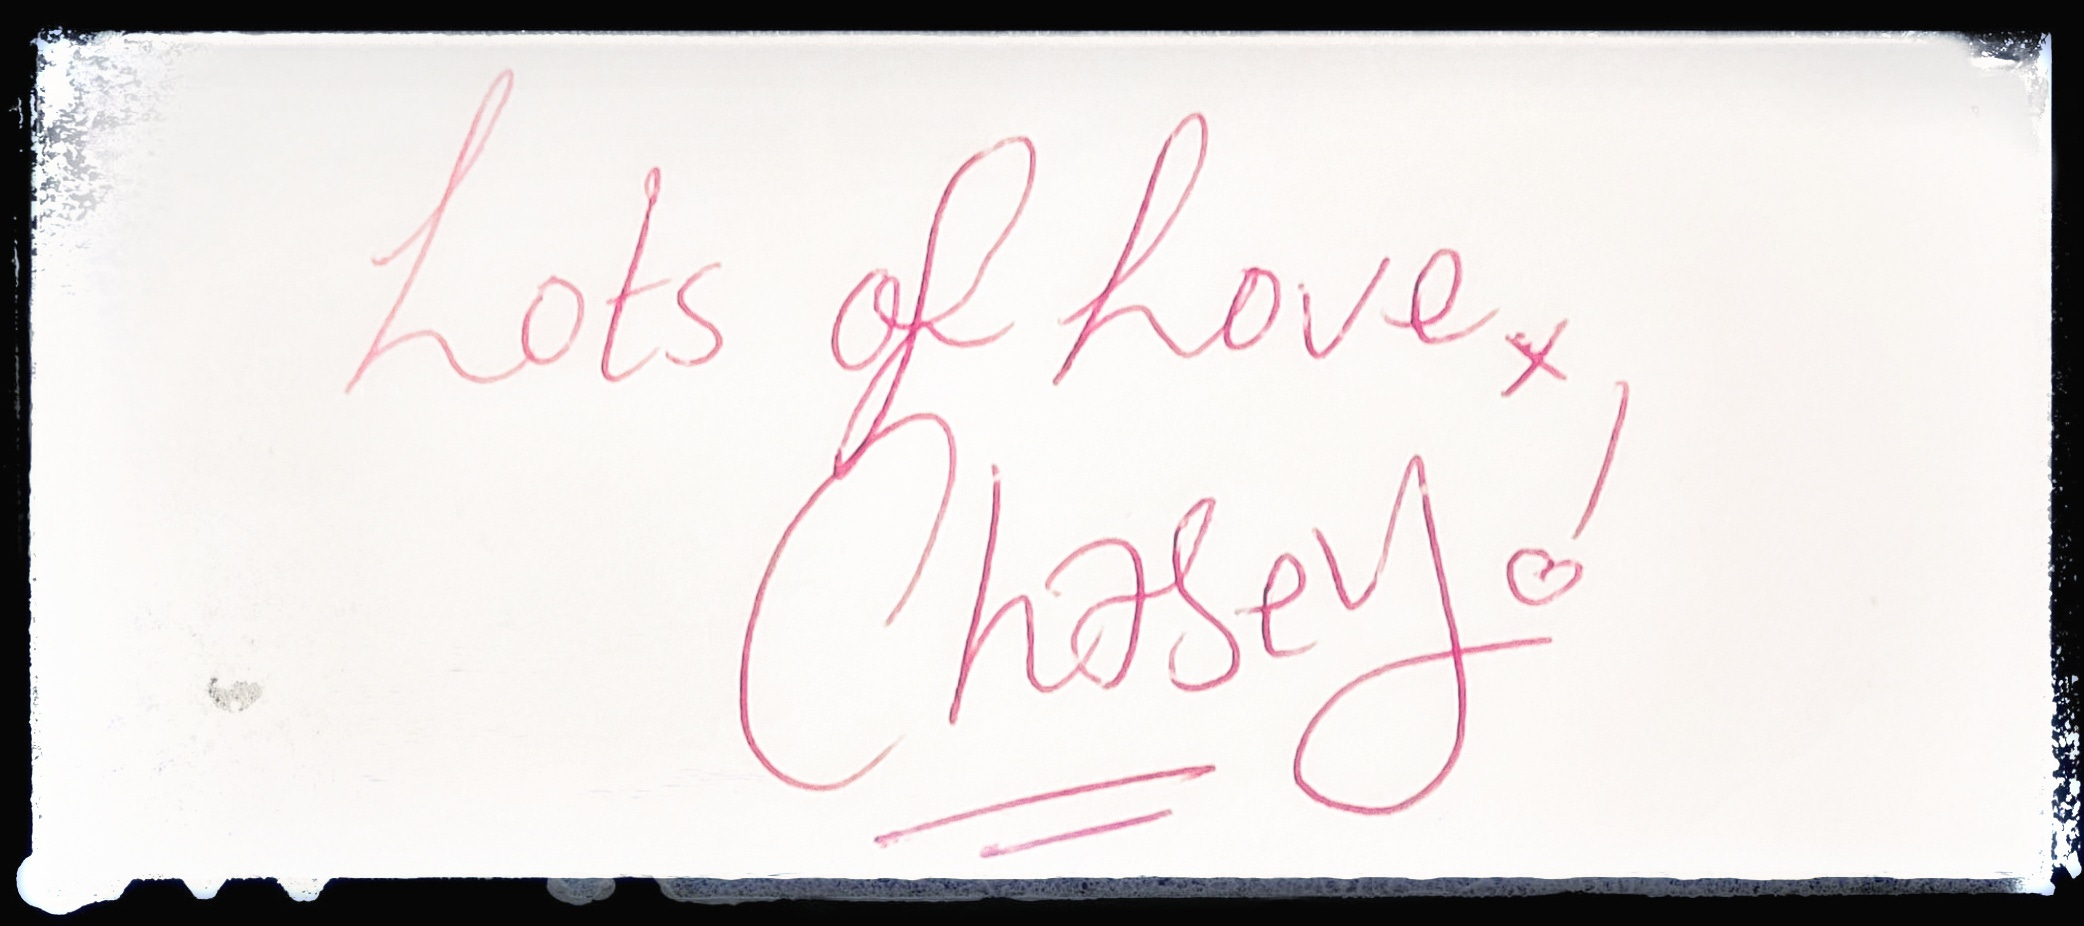 Lots of Love, x
Chasey!